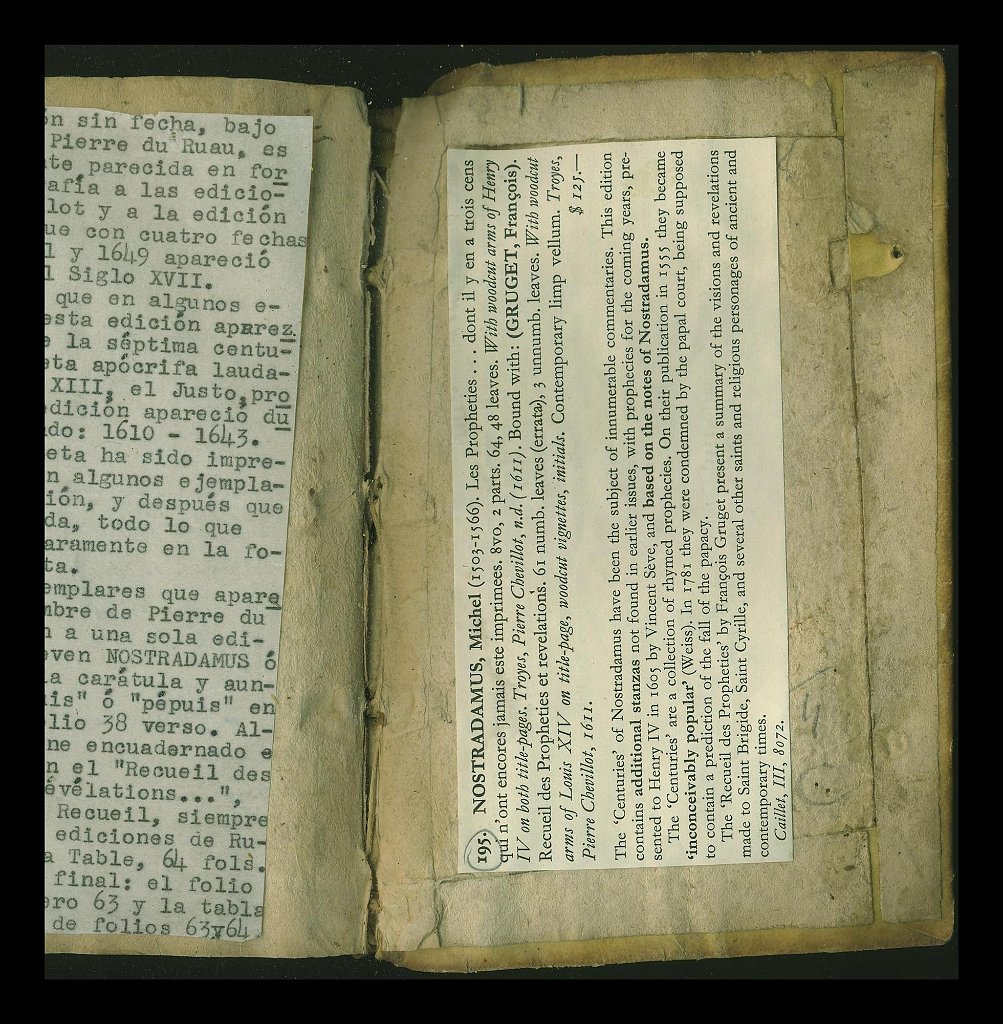 ón sin fecha, bajo
Pierre du Ruau, es
te parecida en for
afía a las edicio-
lot y a la edición
ue con cuatro fechas
1 y 1649 apareció
l Siglo XVII.
que en algunos e-
esta edición aparez
e la séptima centu-
eta apócrifa lauda-
XIII, el Justo,pro
edición apareció du
do: 1610 - 1643.
eta ha sido impre-
n algunos ejempla-
ión, y después que
da, todo lo que
aramente en la fo-
ta.
emplares que apare
mbre de Pierre du
n a una sola edi-
even NOSTRADAMUS ó
a carátula y aun-
is" ó "pépuis" en
lio 38 verso. Al-
ne encuadernado e
n el "Recueil des
évélations...",
Recueil, siempre
ediciones de Ru-
a Table, 64 fols.
final: el folio
ero 63 y la tabla
de folios 63y64
195. NOSTRADAMUS, Michel (1503-1566). Les Propheties . . . dont il y en a trois cens
qui n'ont encores jamais este imprimees. 8vo, 2 parts. 64, 48 leaves. With woodcut arms of Henry
IV on both title-pages. Troyes, Pierre Chevillot, n.d. (1611). Bound with: (GRUGET, François).
Recueil des Propheties et revelations. 61 numb. leaves (errata), 3 unnumb. leaves. With woodcut
arms of Louis XIV on title-page, woodcut vignettes, initials. Contemporary limp vellum. Troyes,
Pierre Chevillot, 1611. $ 125.—
The 'Centuries' of Nostradamus have been the subject of innumerable commentaries. This edition
contains additional stanzas not found in earlier issues, with prophecies for the coming years, pre-
sented to Henry IV in 1605 by Vincent Sève, and based on the notes of Nostradamus.
The 'Centuries' are a collection of rhymed prophecies. On their publication in 1555 they became
'inconceivably popular' (Weiss). In 1781 they were condemned by the papal court, being supposed
to contain a prediction of the fall of the papacy.
The 'Recueil des Propheties' by François Gruget present a summary of the visions and revelations
made to Saint Brigide, Saint Cyrille, and several other saints and religious personages of ancient and
contemporary times.
Caillet, III, 8072.